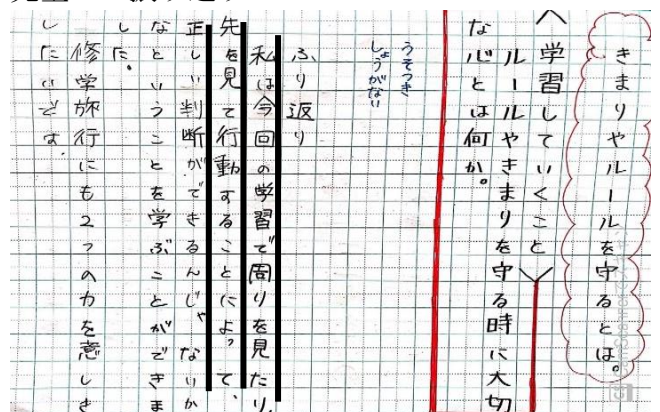 きまりやルールを守るとは。
＜学習していくこと＞
ルールやきまりを守る時に大切
な心とは何か。
うそつき
しょうがない
ふり返り
私は今回の学習で周りを見たり、
先を見て行動することによって、
正しい判断ができるんじゃないか
なということを学ぶことができま
した。
修学旅行にも2つの力を意しき
したいです。